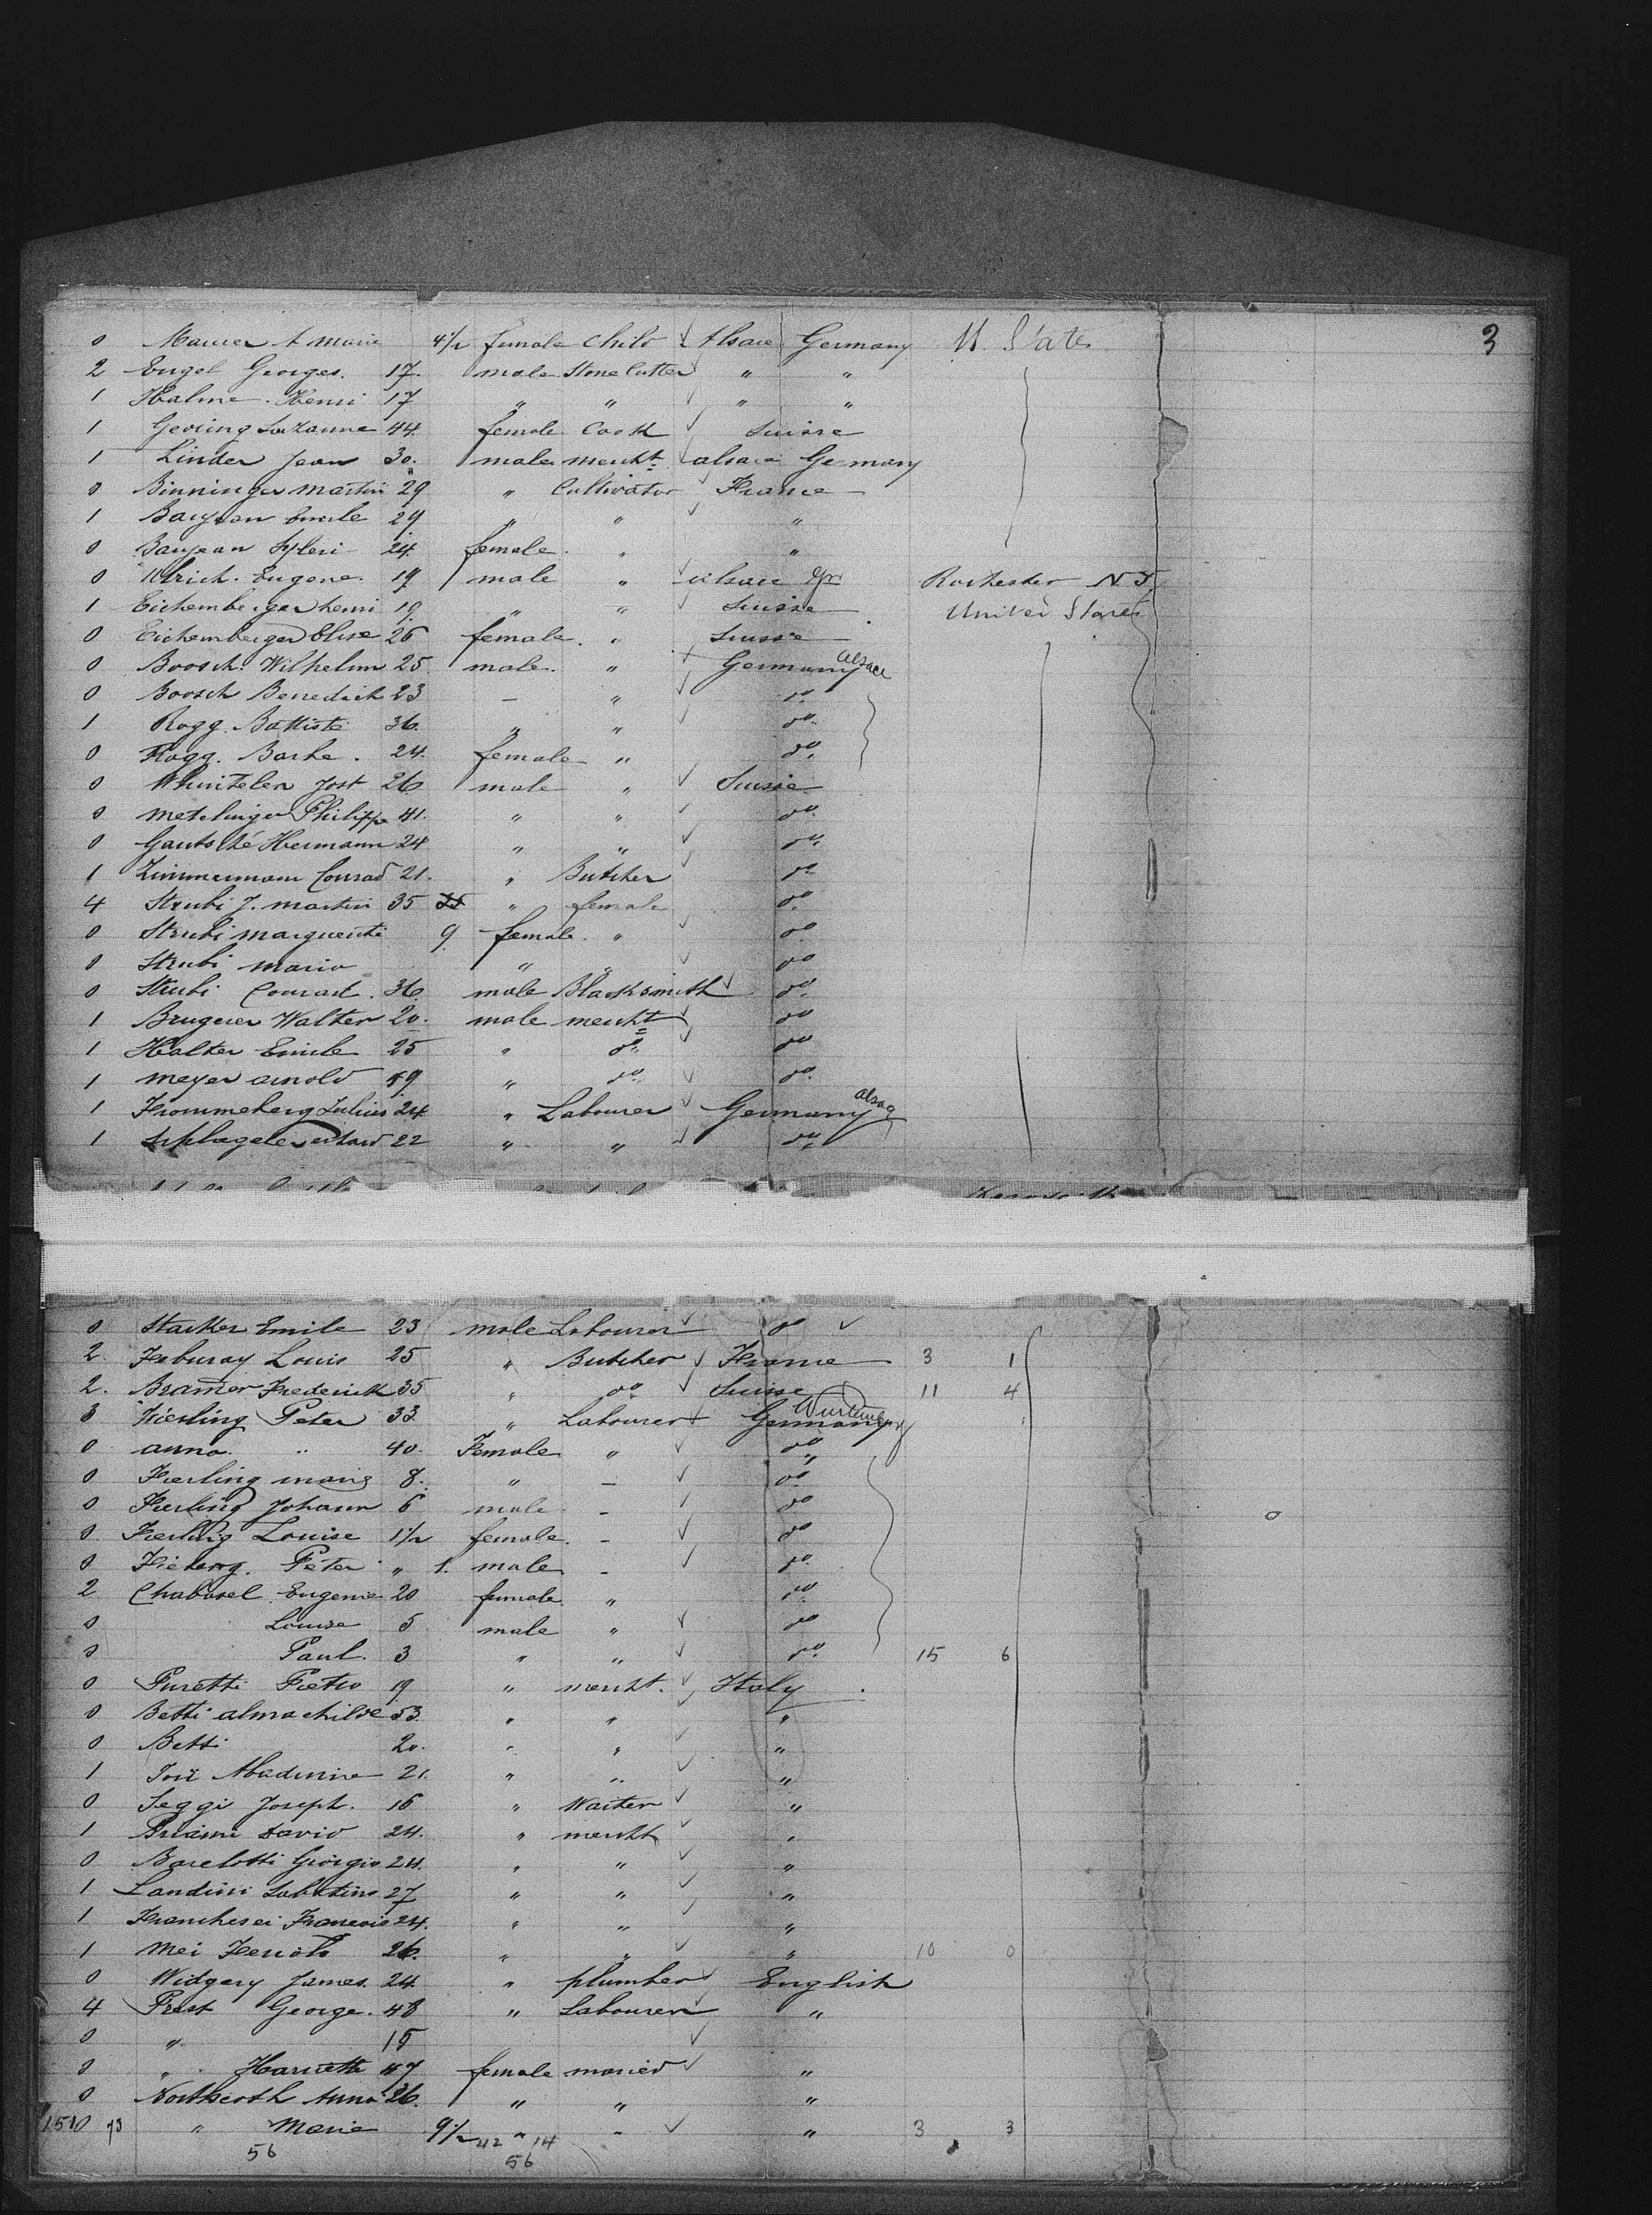 0 Maurer A marie 4½ female child Alsace Germany U. States 3
2 Engel Georges. 17. male Stone Cutter " "
1 Halme. Henri 17 " " " "
1 Gevring Suzanne 44. female Cook Suisse
1 Linder Jean 30. male mercht alsace Germany
0 Binninger martin 29 " Cultivator France
1 Baujean Emile 29 " " "
0 Baujean 24. female " "
0 Ulrich. Eugene. 19 male " alsace Gr Rochester N Y,
1 Eichemberger henri 19. " " Suisse United States
0 Eichemberger Elise 26 female. " Suisse
0 Boosch. Wilhelm 25 male. " Germany Alsace
0 Boosch Benedich 23 – " do
1 Rogg. Battiste 36. " " do
0 Rogg. Barbe. 24. female " do
0 Jost 26 male " Suisse
0 Metzlinger Philippe 41. " " do
0 Gautsché Hermann 24 " " do
1 Zimmermann Conrad 21. " Butcher do
4 Strubi J. martin 35 " female do
0 Strubi marguerite 9 female. " do
0 Strubi maria " " do
0 Strubi Conrad. 36 male Blacksmith do
1 Brugger Walter 20. male mercht do
1 Halter Emile 25 " do do
1 Meyer arnold 19 " do do
1 Frommeherg Julius 24. " Labourer Germany alsac
1 22 " " do
0 Starker Emile 23 male Labourer do
2 Feburay Louis 25 " Butcher France 3 1
2. Bramer Frederick 35 " do Suisse 11 4
3 Fierling Peter 33. " Labourer Germany Wurtemberg
0 anna. " 40. Female " do
0 Fierling marie 8. " – do
0 Fierling Johann 6 male – do
0 Fierling Louise 1½ female. – do
0 Peter " 1. male – do
2 Chabosel Eugenie 20 female. " do
0 Louise 5 male " do
0 Paul. 3 " " do 15 6
0 Puretti Pietro 19 " mercht. Italy
0 Betti almachilde 53. " " "
0 Betti 20. " " "
1 21. " " "
0 Seggi Joseph. 16 " Waiter "
1 David 24. " mercht "
0 Barelotti Giorgio 24. " " "
1 Landini Sabatino 27 " " "
1 Franchesei Francois 24. " " "
1 Mei 26. " " " 10 0
0 Widgery James. 24. " plumber English
4 Prest George. 48 " Labourer "
0 " 15
0 " Harriette 47 female maried "
0 Anna 26. " " "
1510 73 " Marie 9½ " " " 3 3
56 42 14
56